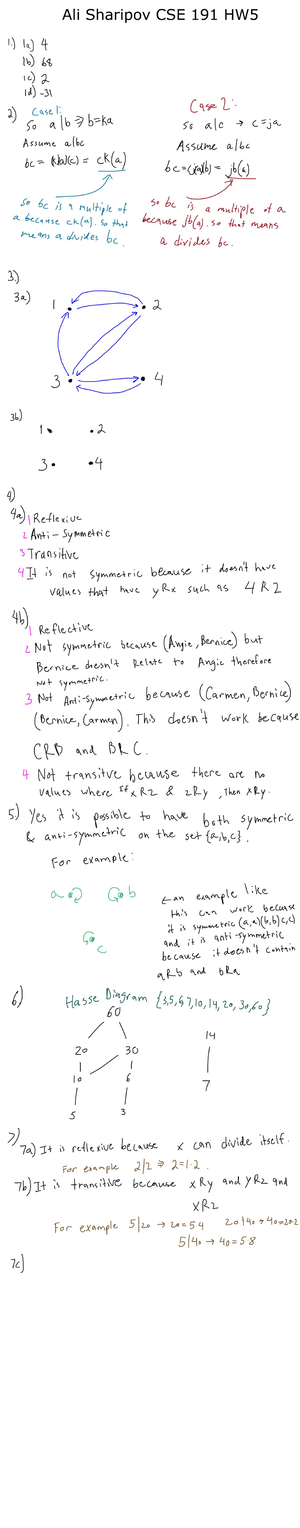 Ali Sharipov CSE 191 HW5
1.) 1a) 4
1b) 68
1c) 2
1d) -31
2) Case 1:
So a|b ⇒ b=ka
Assume a|bc
bc = (ka)(c) = ck(a)
So bc is a multiple of
a because ck(a). So that
means a divides bc.
Case 2:
So a|c → c=ja
Assume a|bc
bc=(ja)(b) = jb(a)
So bc is a multiple of a
because jb(a). So that means
a divides bc.
3.)
3a)
1 2
3 4
3b)
1 2
3 4
4)
4a) 1 Reflexive
2 Anti-Symmetric
3 Transitive
4 It is not symmetric because it doesn't have
values that have yRx such as 4R2
4b)
1 Reflective
2 Not symmetric because (Angie, Bernice) but
Bernice doesn't relate to Angie therefore
not symmetric.
3 Not Anti-symmetric because (Carmen, Bernice)
(Bernice, Carmen). This doesn't work because
CRB and BRC.
4 Not transitve because there are no
values where if xRz & zRy, then xRy.
5) Yes it is possible to have both symmetric
& anti-symmetric on the set {a,b,c}.
For example:
a b
c
← an example like
this can work because
it is symmetric (a,a)(b,b)(c,c)
and it is anti-symmetric
because it doesn't contain
aRb and bRa
6) Hasse Diagram {3,5,6,7,10,14,20,30,60}
60
20 30
10 6
5 3
14
7
7)
7a) It is reflexive because x can divide itself.
For example 2|2 ⇒ 2=1·2.
7b) It is transitive because xRy and yRz and
xRz
For example 5|20 → 20=5·4 20|40 → 40=20·2
5|40 → 40=5·8
7c)